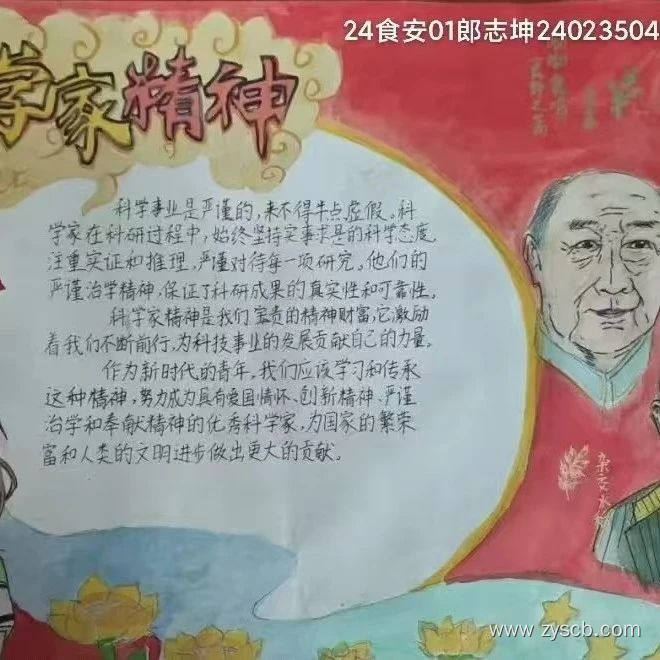 24食安01郎志坤24023504
学家精神
科学事业是严谨的,来不得半点虚假。科
学家在科研过程中,始终坚持实事求是的科学态度,
注重实证和推理,严谨对待每一项研究。他们的
严谨治学精神,保证了科研成果的真实性和可靠性。
科学家精神是我们宝贵的精神财富,它激励
着我们不断前行,为科技事业的发展贡献自己的力量。
作为新时代的青年,我们应该学习和传承
这种精神,努力成为具有爱国情怀、创新精神、严谨
治学和奉献精神的优秀科学家,为国家的繁荣
富和人类的文明进步做出更大的贡献。
杂交水
www.zyscb.com